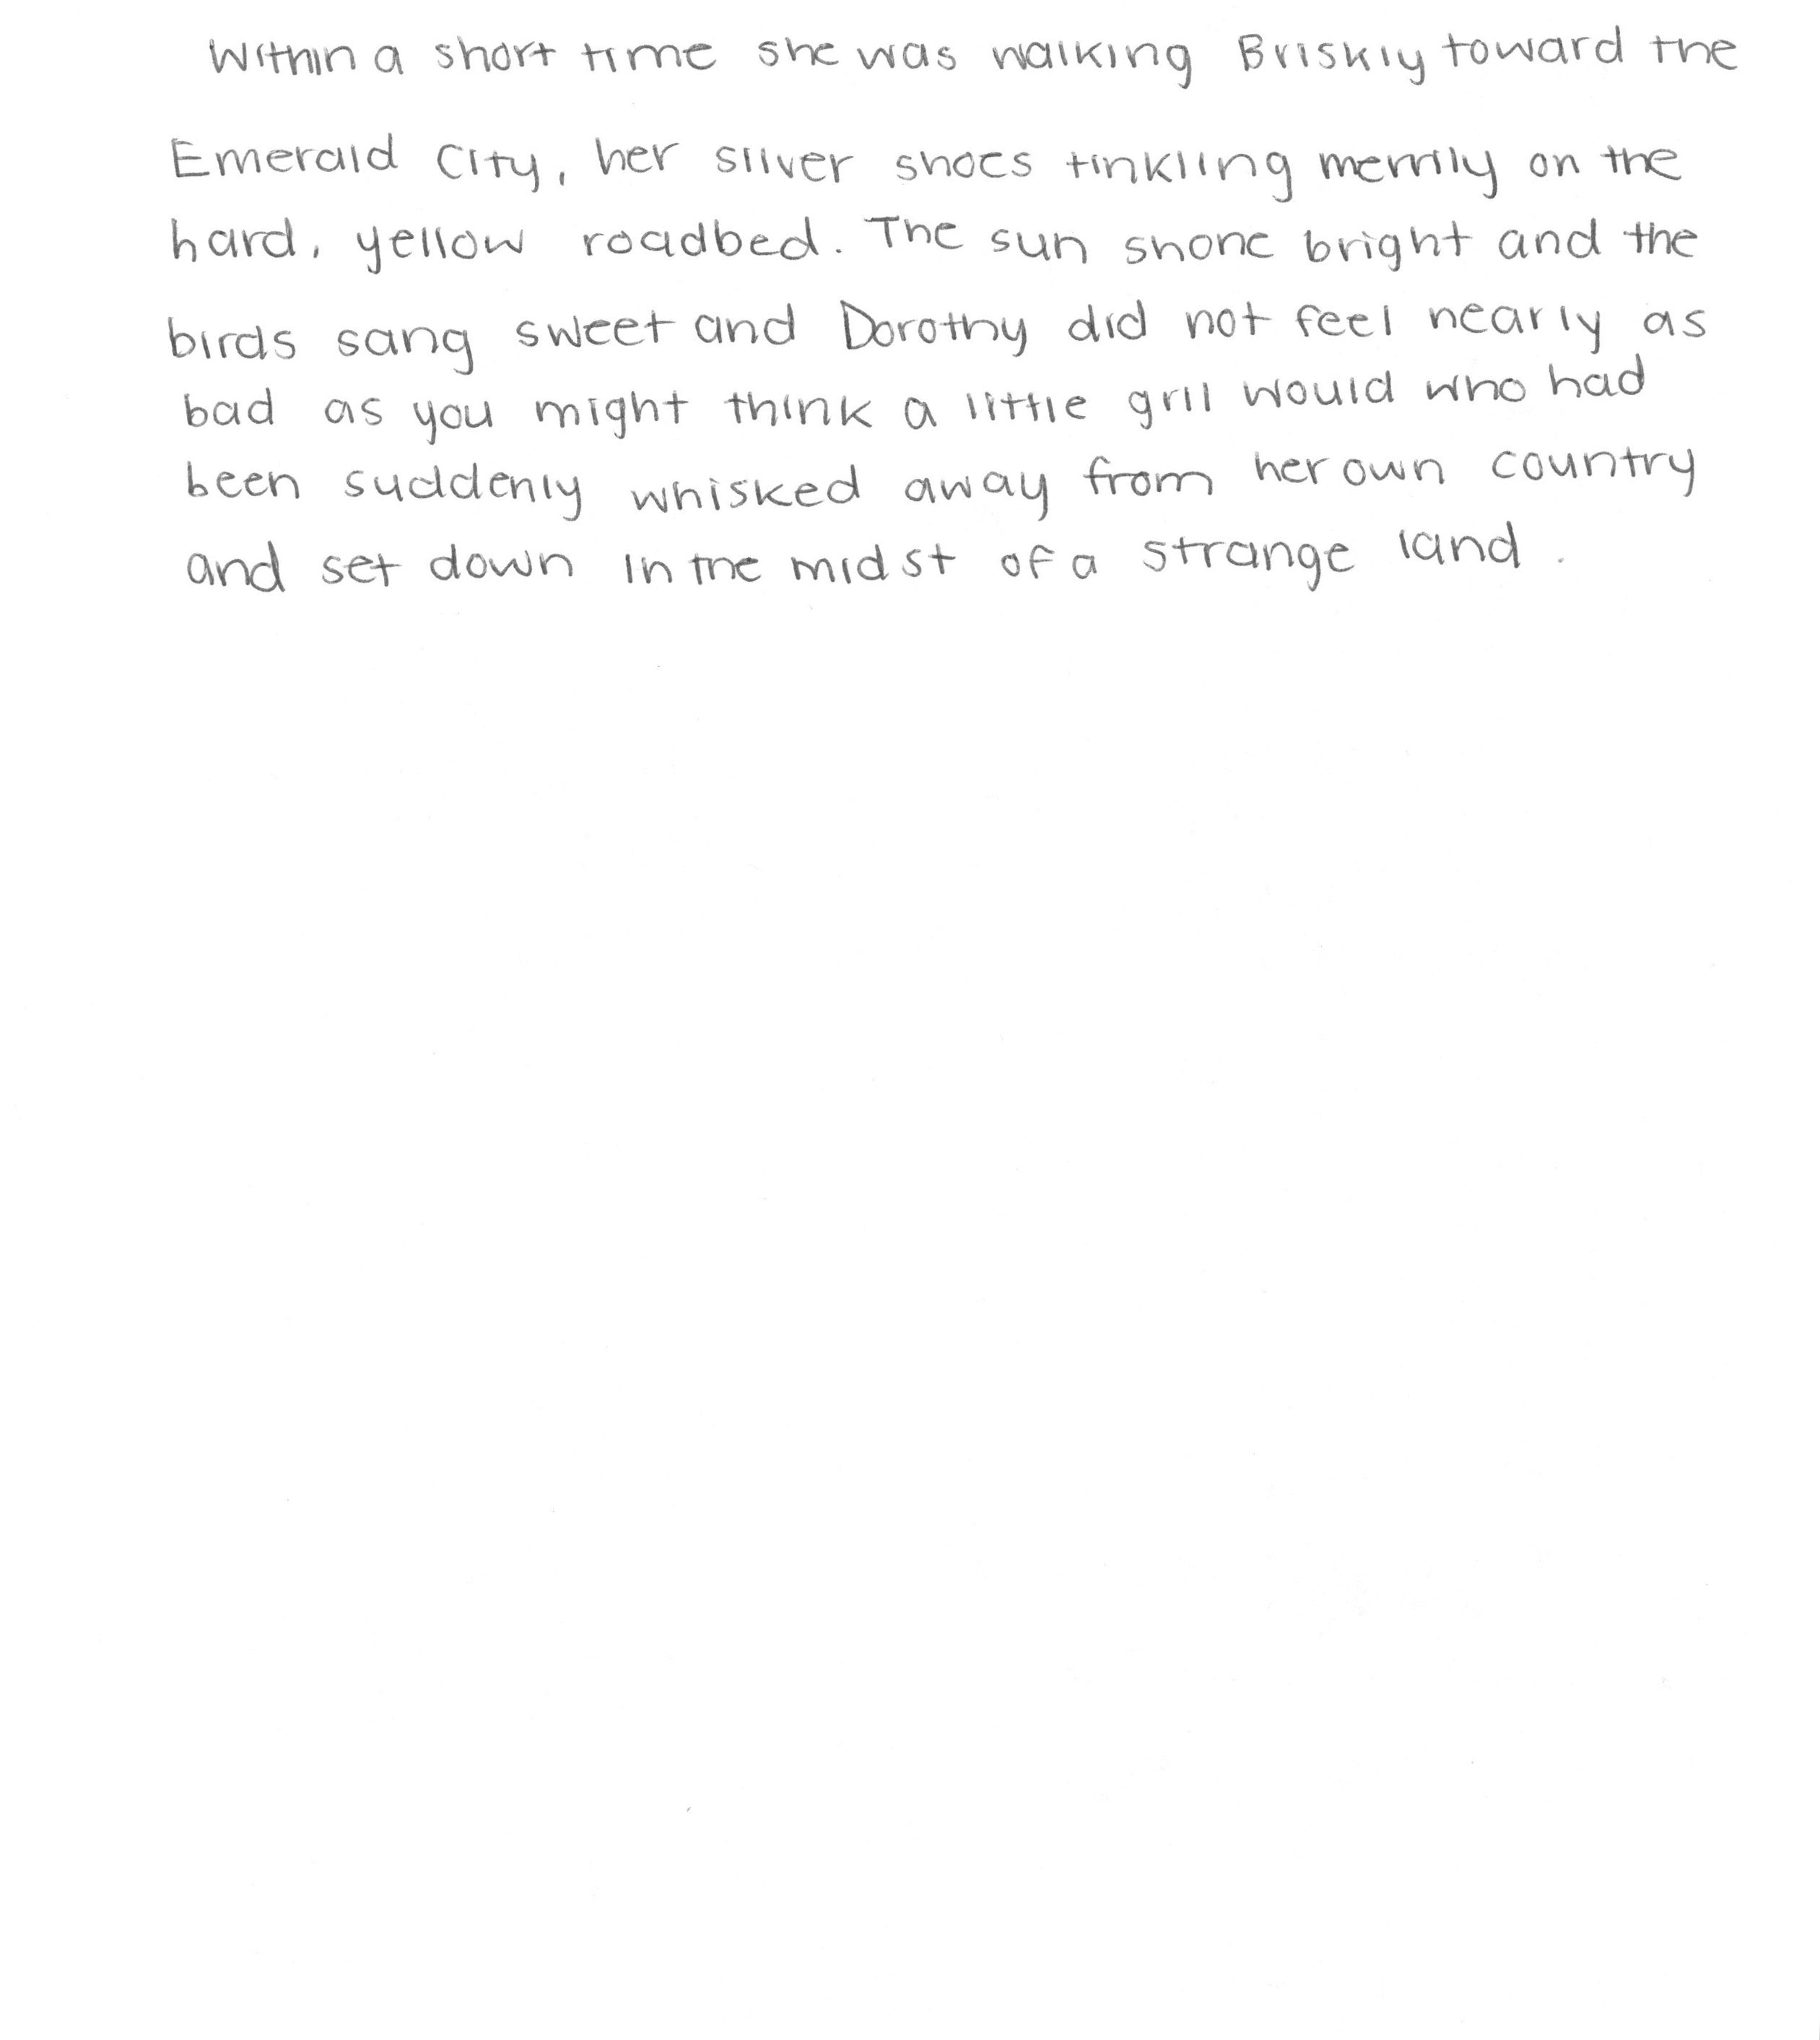 Within a short time she was walking Briskly toward the
Emerald City, her silver shoes tinkling merrily on the
hard, yellow roadbed. The sun shone bright and the
birds sang sweet and Dorothy did not feel nearly as
bad as you might think a little gril would who had
been suddenly whisked away from her own country
and set down in the midst of a strange land.